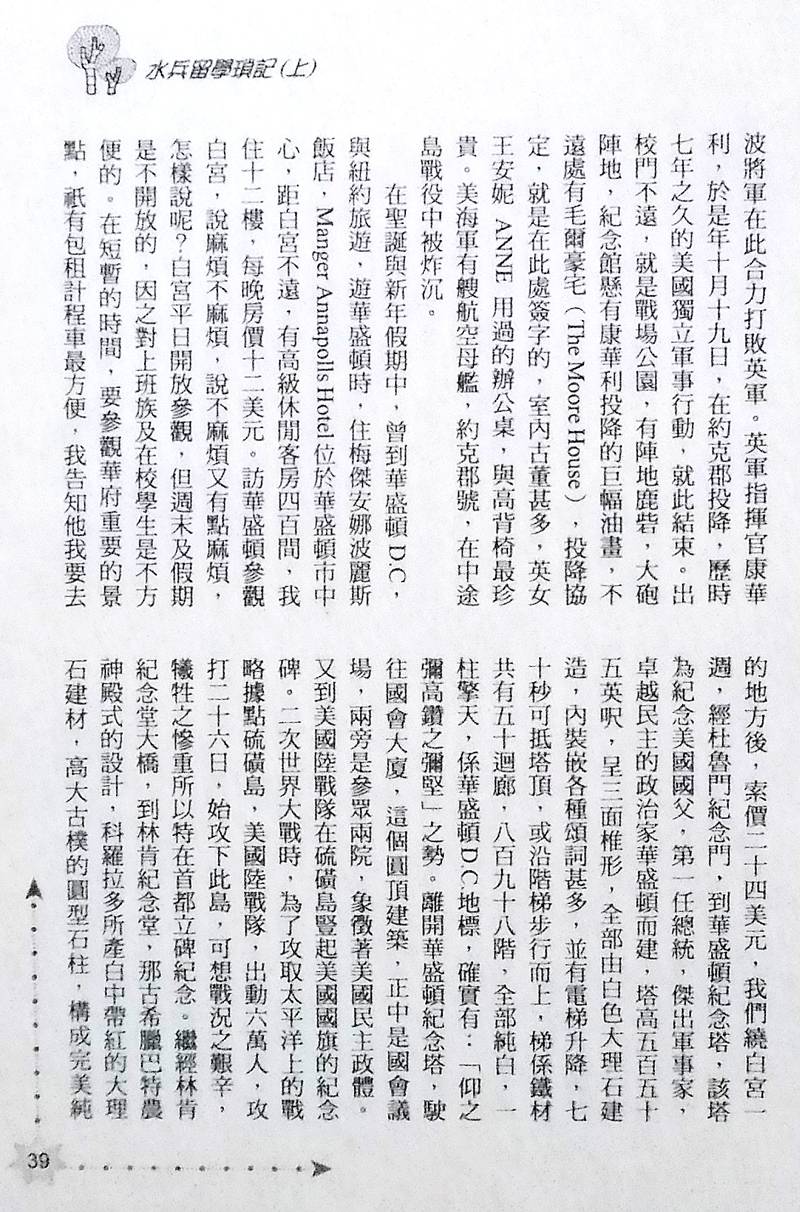 水兵留學瑣記(上)
波將軍在此合力打敗英軍。英軍指揮官康華
利，於是年十月十九日，在約克郡投降，歷時
七年之久的美國獨立軍事行動，就此結束。出
校門不遠，就是戰場公園，有陣地鹿砦，大砲
陣地，紀念館懸有康華利投降的巨幅油畫，不
遠處有毛爾豪宅（The Moore House），投降協
定，就是在此處簽字的，室內古董甚多，英女
王安妮 ANNE 用過的辦公桌，與高背椅最珍
貴。美海軍有艘航空母艦，約克郡號，在中途
島戰役中被炸沉。
在聖誕與新年假期中，曾到華盛頓D.C，
與紐約旅遊，遊華盛頓時，住梅傑安娜波麗斯
飯店，Manger Annapolls Hotel 位於華盛頓市中
心，距白宮不遠，有高級休閒客房四百間，我
住十二樓，每晚房價十二美元。訪華盛頓參觀
白宮，說麻煩不麻煩，說不麻煩又有點麻煩，
怎樣說呢？白宮平日開放參觀，但週末及假期
是不開放的，因之對上班族及在校學生是不方
便的。在短暫的時間，要參觀華府重要的景
點，祇有包租計程車最方便，我告知他我要去
的地方後，索價二十四美元，我們繞白宮一
週，經杜魯門紀念門，到華盛頓紀念塔，該塔
為紀念美國國父，第一任總統，傑出軍事家，
卓越民主的政治家華盛頓而建，塔高五百五十
五英呎，呈三面椎形，全部由白色大理石建
造，內裝嵌各種頌詞甚多，並有電梯升降，七
十秒可抵塔頂，或沿階梯步行而上，梯係鐵材
共有五十迴廊，八百九十八階，全部純白，一
柱擎天，係華盛頓D.C.地標，確實有：「仰之
彌高鑽之彌堅」之勢。離開華盛頓紀念塔，駛
往國會大廈，這個圓頂建築，正中是國會議
場，兩旁是參眾兩院，象徵著美國民主政體。
又到美國陸戰隊在硫磺島豎起美國國旗的紀念
碑。二次世界大戰時，為了攻取太平洋上的戰
略據點硫磺島，美國陸戰隊，出動六萬人，攻
打二十六日，始攻下此島，可想戰況之艱辛，
犧牲之慘重所以特在首都立碑紀念。繼經林肯
紀念堂大橋，到林肯紀念堂，那古希臘巴特農
神殿式的設計，科羅拉多所產白中帶紅的大理
石建材，高大古樸的圓型石柱，構成完美純
39